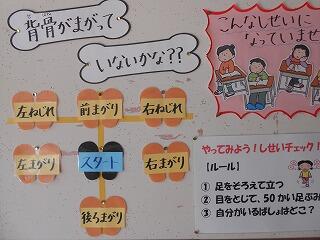 背骨がまがって
いないかな??
こんなしせいに
なっていませ
左ねじれ
前まがり
右ねじれ
左まがり
スタート
右まがり
後らまがり
やってみよう!しせいチェック!
【ルール】
① 足をそろえて立つ
② 目をとじて、50かい足ぶみ
③ 自分がいるばしょはどこ?